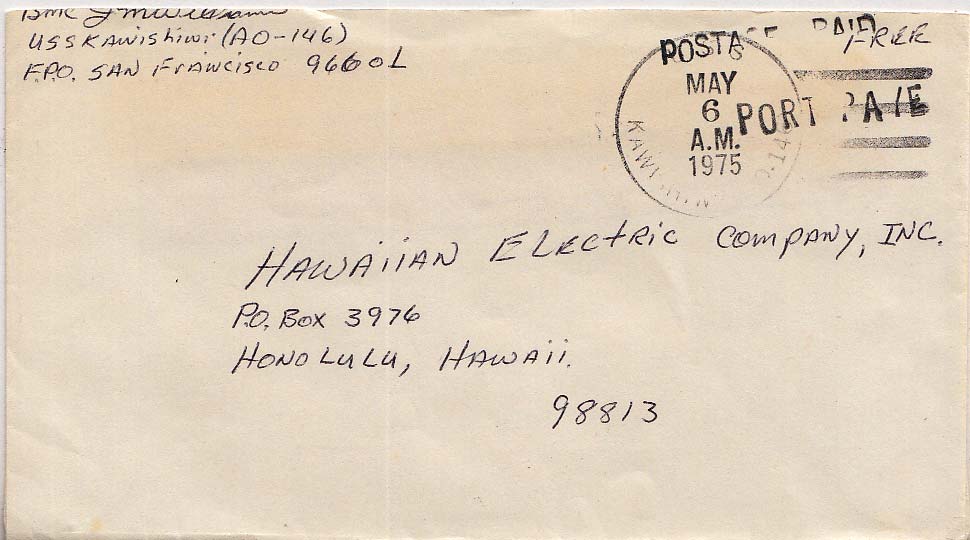 BMC J M Williams
USS Kawishiwi (AO-146)
F.P.O. San Francisco 96601
Free
POSTAGE PAID
PORT PAYE
MAY
6
A.M.
1975
Hawaiian Electric Company, Inc.
P.O. Box 3976
Honolulu, Hawaii.
98813